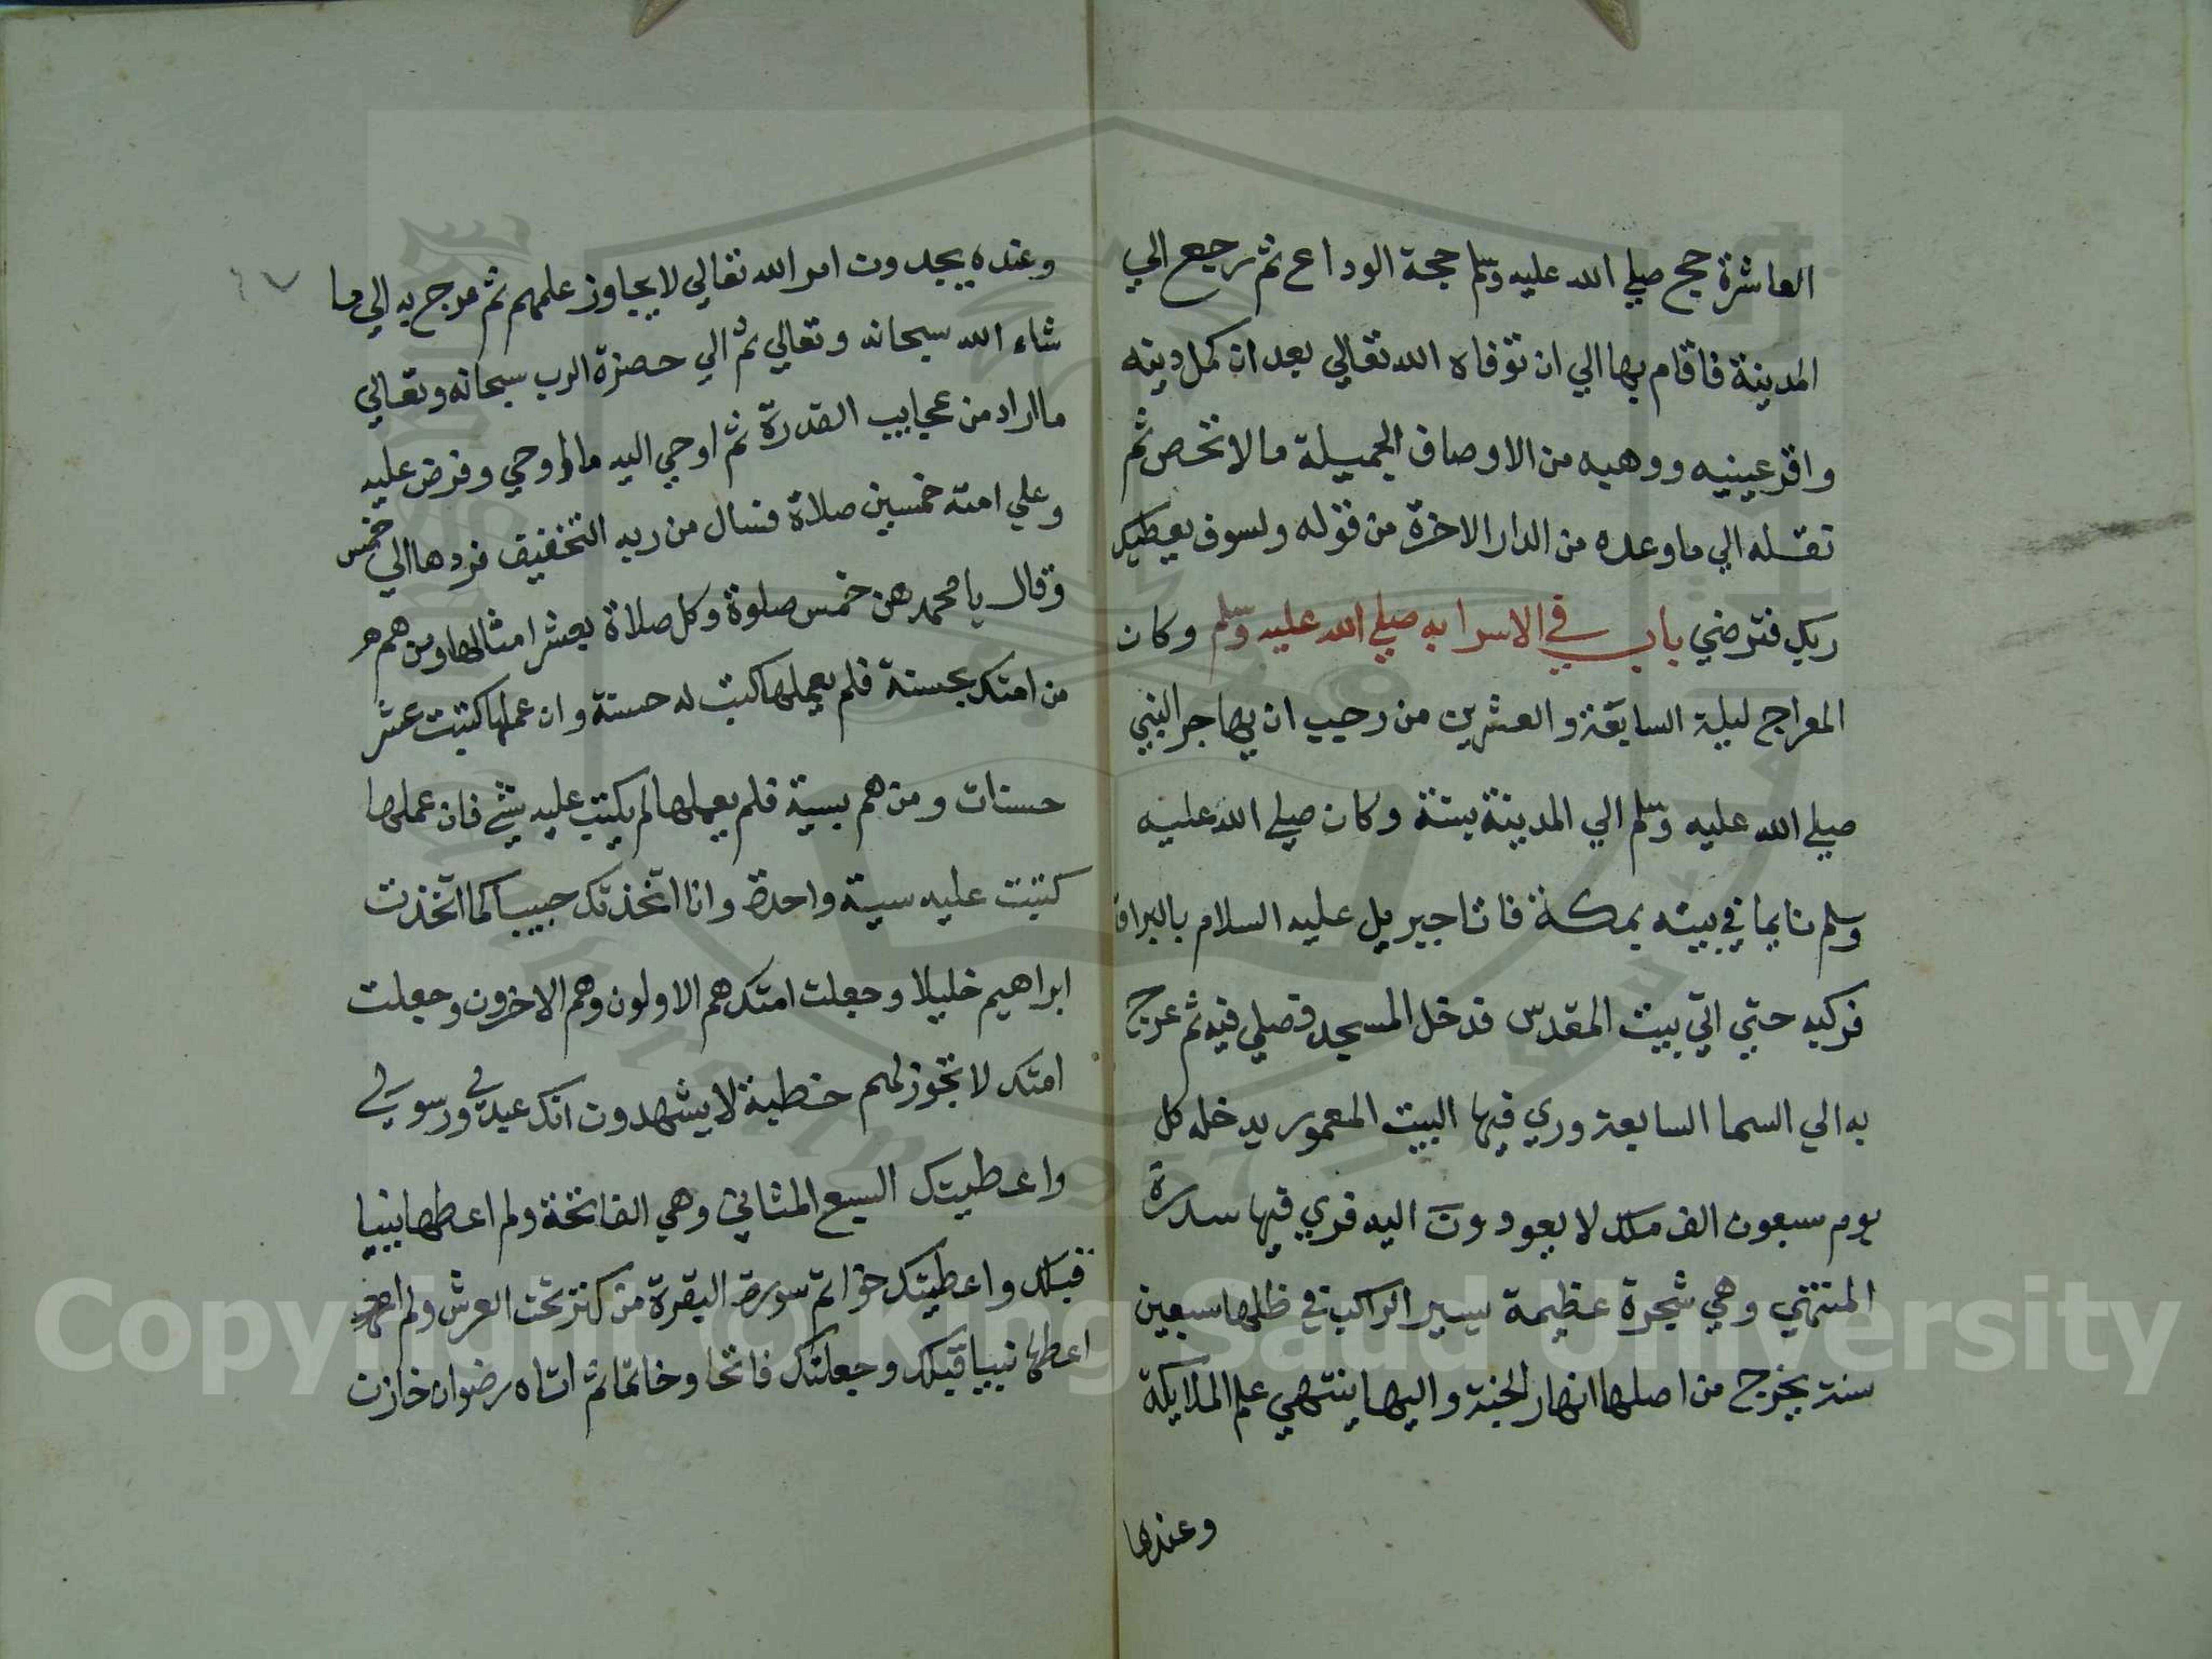 العاشرة حج صلي الله عليه وسلم حجة الوداع ثم رجع الي
المدينة فاقام بها الي ان توفاه الله تعالي بعد ان كمل دينه
واقر عينيه ووهبه من الاوصاف الجميلة ما لا تحص ثم
نقله الي ما وعده من الدار الاخرة من قوله ولسوف يعطيك
ربك فترضي باب في الاسرا به صلي الله عليه وسلم وكان
المعراج ليلة السابعة والعشرين من رجب ان يهاجر النبي
صلي الله عليه وسلم الي المدينة بسنة وكان صلي الله عليه
وسلم نايما في بيته بمكة فاتا جبريل عليه السلام بالبراق
فركبه حتي اتي بيت المقدس فدخل المسجد وصلي فيه ثم عرج
به الي السما السابعة وري فيها البيت المعمور يدخله كل
يوم سبعون الف ملك لا يعودون اليه فري فيها سدرة
المنتهي وهي شجرة عظيمة يسير الراكب في ظلها سبعين
سنة يخرج من اصلها انهار الجنة واليها ينتهي علم الملايكة
وعندها
وعنده يجدون امر الله تعالي لا يجاوز علمهم ثم عرج به الي ما
شاء الله سبحانه وتعالي ثم الي حضرة الرب سبحانه وتعالي
ما اراد من عجايب القدرة ثم اوحي اليه ما اوحي وفرض عليه
وعلي امته خمسين صلاة فسال من ربه التخفيف فردها الي خمس
وقال يا محمد هن خمس صلوة وكل صلاة بعشر امثالها ومن هم هر
من امتك بحسنة فلم يعملها كتبت له حسنة وان عملها كتبت عشر
حسنات ومن هم بسية فلم يعملها لم يكتب عليه شي فان عملها
كتبت عليه سية واحدة وانا اتخذتك حبيبا كما اتخذت
ابراهيم خليلا وجعلت امتك هم الاولون وهم الاخرون وجعلت
امتك لا تجوز لهم خطية لا يشهدون انك عبدي ورسولي
واعطيتك السبع المثاني وهي الفاتحة ولم اعطها نبيا
قبلك واعطيتك خواتم سورة البقرة من كنز تحت العرش ولم
اعطها نبيا قبلك وجعلتك فاتحا وخاتما ثم اتاه رضوان خازن